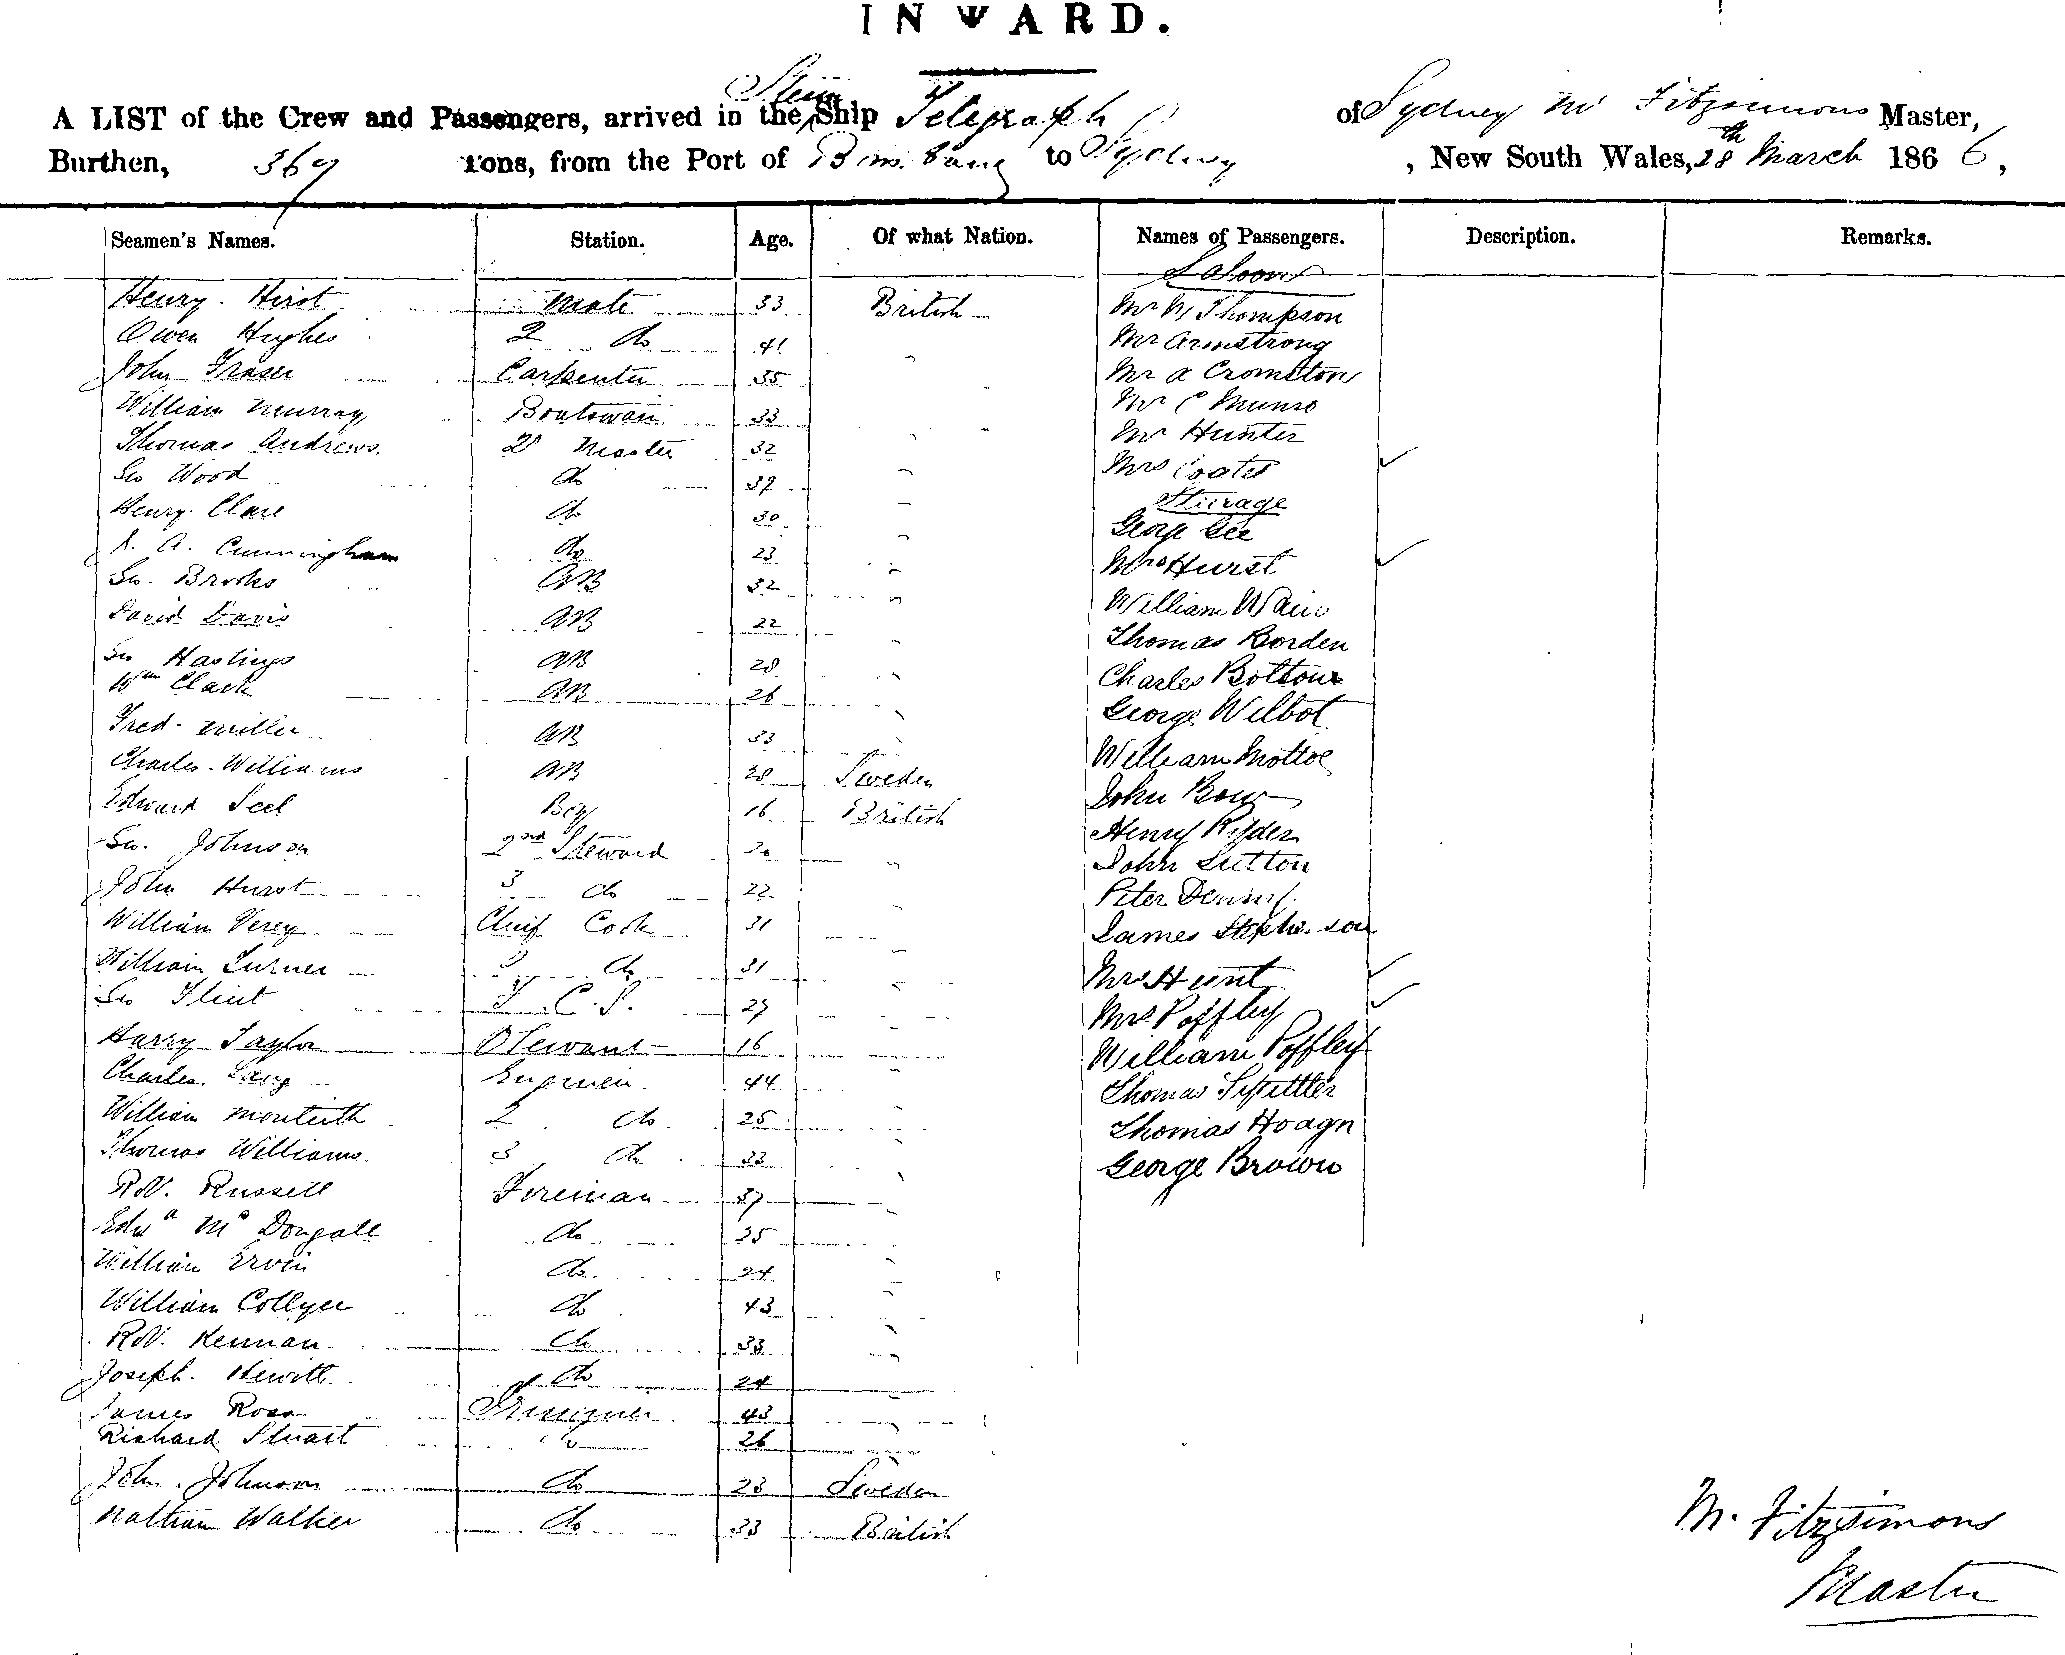 INWARD.
A LIST of the Crew and Passengers, arrived in the Steam Ship Telegraph of Sydney M Fitzsimons Master,
Burthen, 369 Tons, from the Port of Brisbane to Sydney, New South Wales, 28th March 1866,
Seamen's Names. Station. Age. Of what Nation. Names of Passengers. Description. Remarks.
Saloon
Henry Hirst Mate 33 British Mr W Thompson
Owen Hughes 2 do 41 " Mr Armstrong
John Fraser Carpenter 35 " Mr A Crompton
William Murray Boatswain 33 " Mr C Munro
Thomas Andrews 2r Master 32 " Mr Hunter
Geo Wood do 39 " Mrs Coates
Steerage
Henry Clare do 30 " George Gee
A. Cunningham do 23 " Mrs Hurst
Geo. Brooks AB 32 " William Wain
David Davis AB 22 " Thomas Borden
Geo Hastings AB 28 " Charles Bottour
Wm Clark AB 26 " George Wilbot
Fred. Miller AB 33 " William Mottoe
Charles Williams AB 28 Sweden John Bow
Edward Seel Boy 16 British Henry Ryder
Geo. Johnson 2nd Steward 30 " John Sutton
John Hurst 3 do 22 " Peter Dennis
William Verey Chief Cook 31 " James Stephenson
William Turner 2 do 31 " Mrs Hunt
Geo Flint F. C. S. 29 " Mrs Poffley
Harry Taylor Steward 16 " William Poffley
Charles Lang Engineer 44 " Thomas Spittler
William Monteith 2 do 25 " Thomas Hoagn
Thomas Williams 3 do 33 " George Brown
Rd. Russell Fireman 37 "
Edwd McDougall do 35 "
William Ervin do 24 "
William Collyer do 43 "
Rd. Keenan do 33 "
Joseph Hewitt do 24 "
James Ross Trimmer 43 "
Richard Stuart do 26 "
John Johnson do 23 Sweden
Nathan Walker do 33 British
M. Fitzsimons
Master